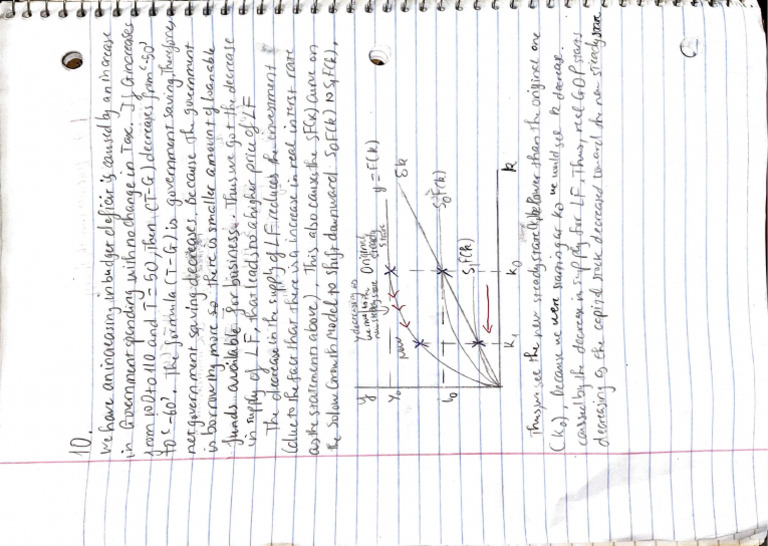 10.
We have an increasing in budget deficit is caused by an increase
in Government spending with no change in Tax. If G increases
from 100 to 110 and T = 50, than (T-G) decreases from "-50"
to "-60". The formula (T-G) is government saving, Therefore,
net government saving decreases. Because the government
is borrowing more so there is smaller amount of loanable
funds available for business. Thus we got the decrease
in supply of LF, that leads to a higher price of LF
The decrease in the supply of LF reduces the investment
(due to the fact that there is a increase in real interest rate
as the statements above), This also causes the SF(k) curve on
the Solow Growth Model to shift downward S₀F(k) to S₁F(k),
y decreasing as
we move to the
new steady state
Original
steady
state
y = F(k)
new
δk
S₀F(k)
S₁F(k)
y
y₀
k₁
k₀
k
Thus we see the new steady state lower than the original one
(k₀), because we were starting at k₀ we would see k decrease
caused by the decrease in supply for LF. Thus, real GDP starts
decreasing as the capital stock decreased toward the new steady state